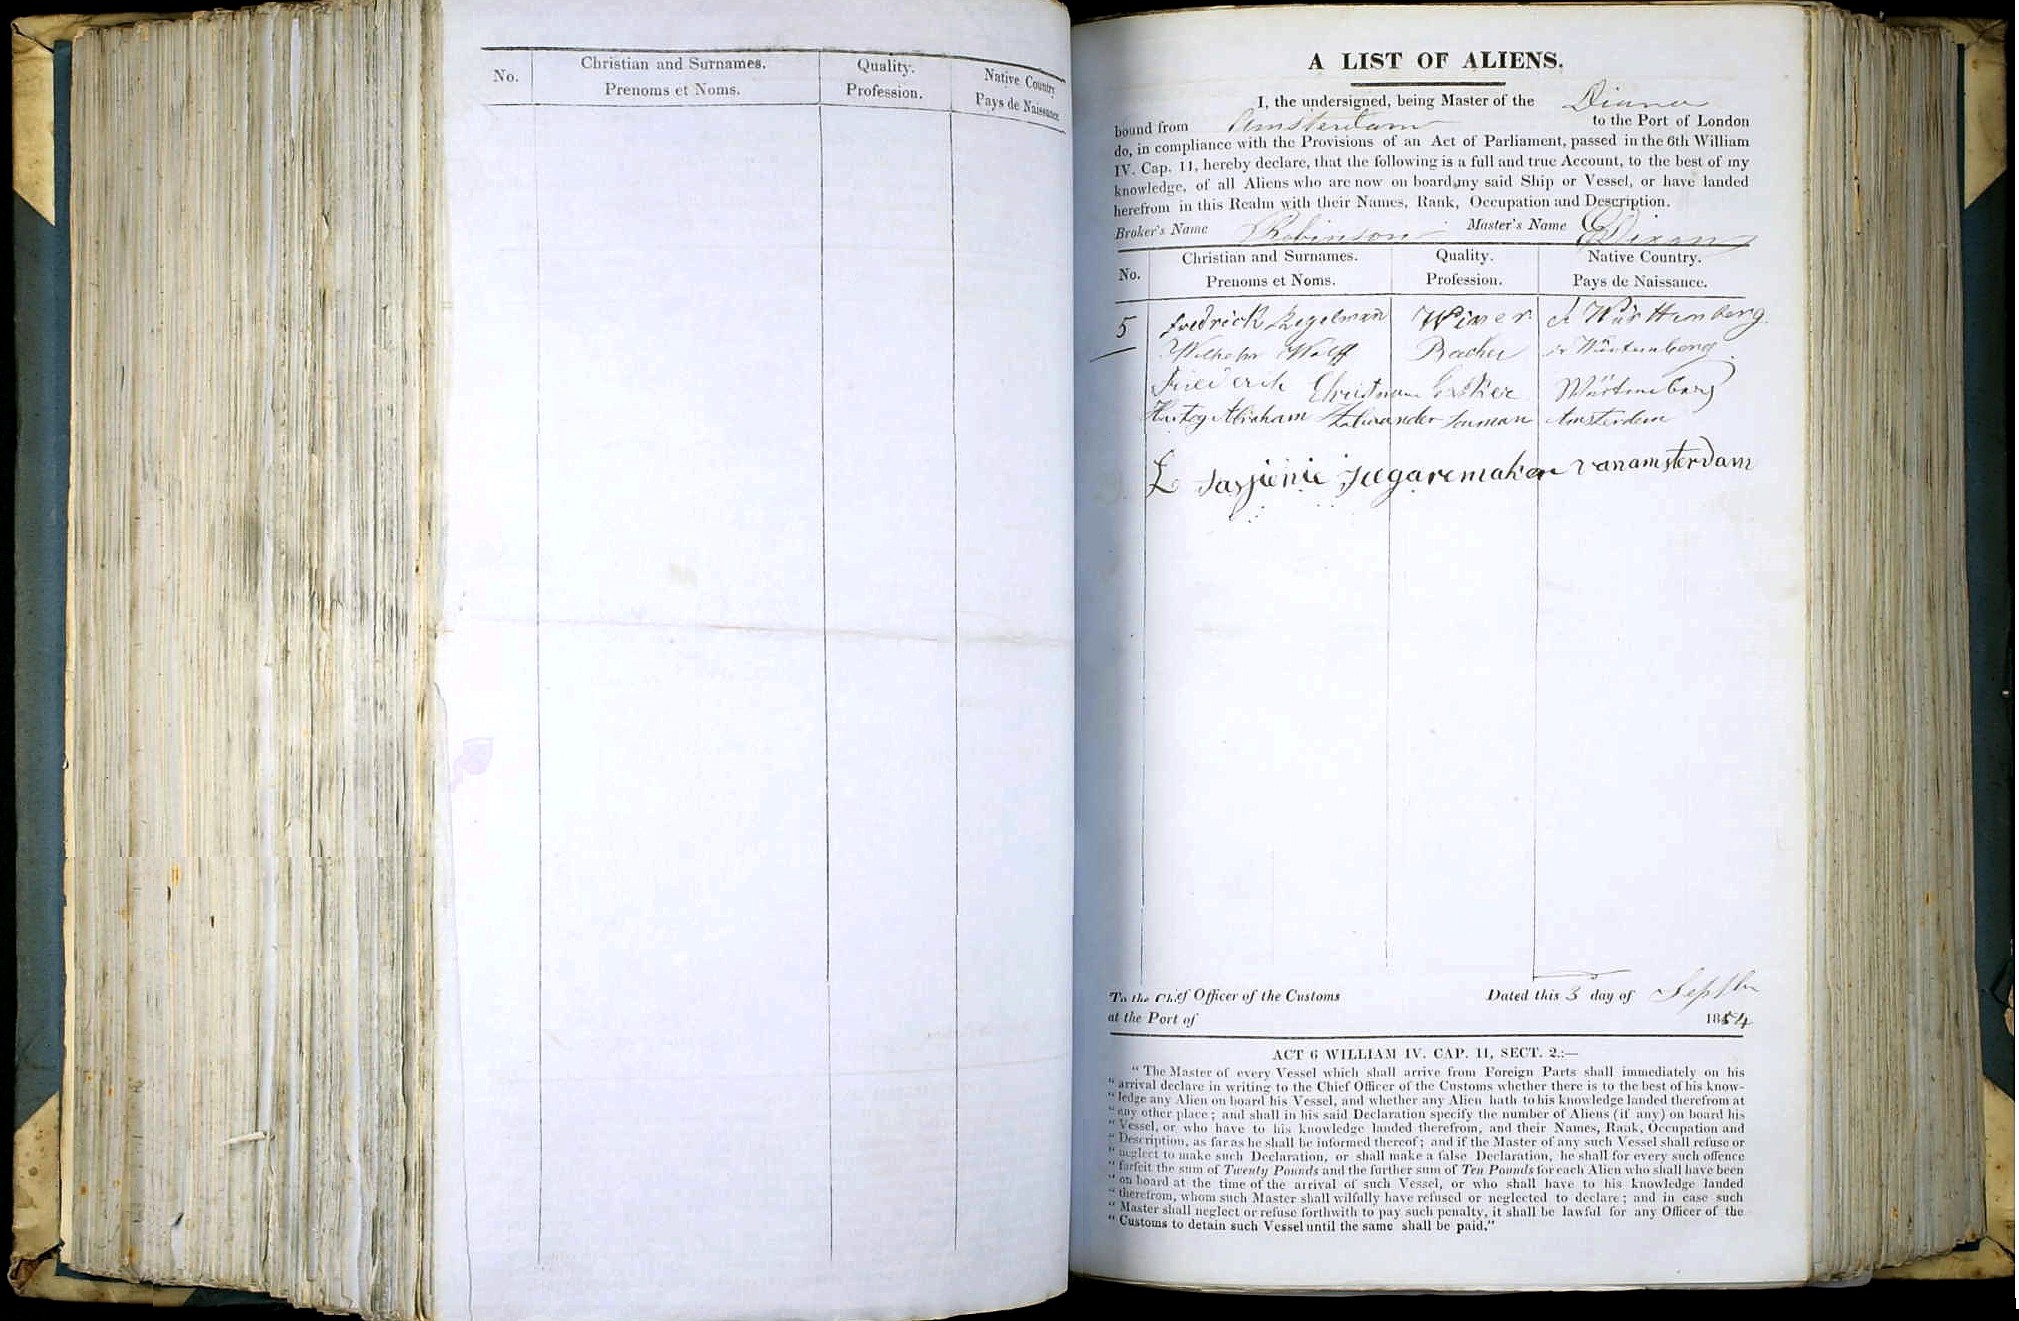 No.
Christian and Surnames.
Prenoms et Noms.
Quality.
Profession.
Native Country
Pays de Naissance.
A LIST OF ALIENS.
I, the undersigned, being Master of the Diana
bound from Amsterdam to the Port of London
do, in compliance with the Provisions of an Act of Parliament, passed in the 6th William
IV. Cap. 11, hereby declare, that the following is a full and true Account, to the best of my
knowledge, of all Aliens who are now on board my said Ship or Vessel, or have landed
herefrom in this Realm with their Names, Rank, Occupation and Description.
Broker's Name Robinson Master's Name Dixon
No.
Christian and Surnames.
Prenoms et Noms.
Quality.
Profession.
Native Country.
Pays de Naissance.
5 Fredrick
Wilhelm Wolff Backer
Friederich Christman
Hertog Abraham Alexander Amsterdam
L van amsterdam
To the Chief Officer of the Customs Dated this 3 day of Septbr
at the Port of 1854
ACT 6 WILLIAM IV. CAP. 11, SECT. 2.:—
" The Master of every Vessel which shall arrive from Foreign Parts shall immediately on his
" arrival declare in writing to the Chief Officer of the Customs whether there is to the best of his know-
" ledge any Alien on board his Vessel, and whether any Alien hath to his knowledge landed therefrom at
" any other place; and shall in his said Declaration specify the number of Aliens (if any) on board his
" Vessel, or who have to his knowledge landed therefrom, and their Names, Rank, Occupation and
" Description, as far as he shall be informed thereof; and if the Master of any such Vessel shall refuse or
" neglect to make such Declaration, or shall make a false Declaration, he shall for every such offence
" forfeit the sum of Twenty Pounds and the further sum of Ten Pounds for each Alien who shall have been
" on board at the time of the arrival of such Vessel, or who shall have to his knowledge landed
" therefrom, whom such Master shall wilfully have refused or neglected to declare; and in case such
" Master shall neglect or refuse forthwith to pay such penalty, it shall be lawful for any Officer of the
" Customs to detain such Vessel until the same shall be paid."